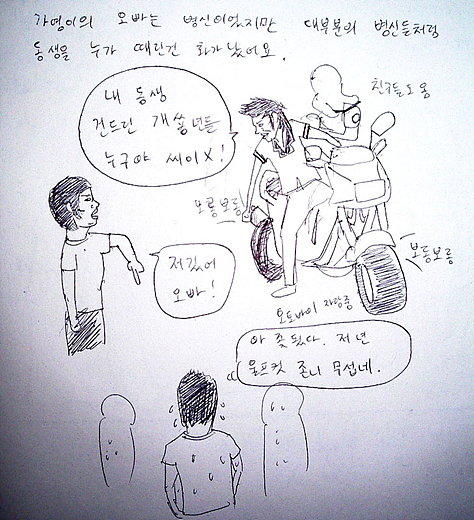 가영이의 오빠는 병신이었지만 대부분의 병신들처럼
동생을 누가 때린건 화가 났어요.
내 동생
건드린 개쌍년들
누구야 씨이X!
친구들도 옴
부릉부릉
저깄어
오빠!
부릉부릉
오토바이 자랑중
아 좆됐다. 저 년
울프컷 존나 무섭네.